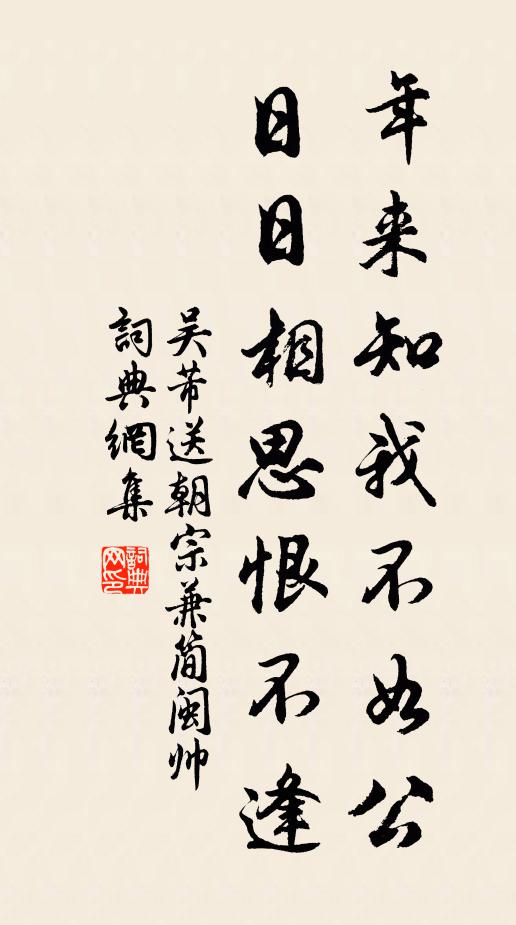 年来知我不如公
日日相思恨不逢
吴芾送朝宗兼简闽帅
詞典網集
詞典网印